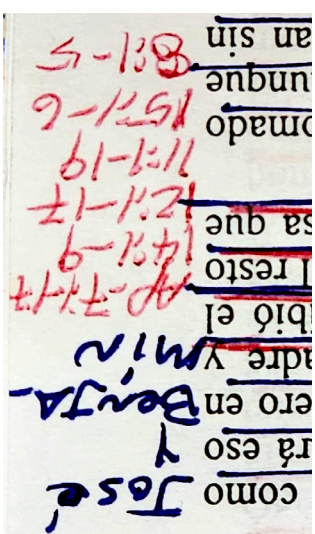 como José
rá eso Y
ero en BENJA-
adre y MÍN
ibió el
l resto AP-7:1-17
sa que 14:1-9
12:1-17
11:1-19
omado 15:1-6
unque 8:1-5
an sin